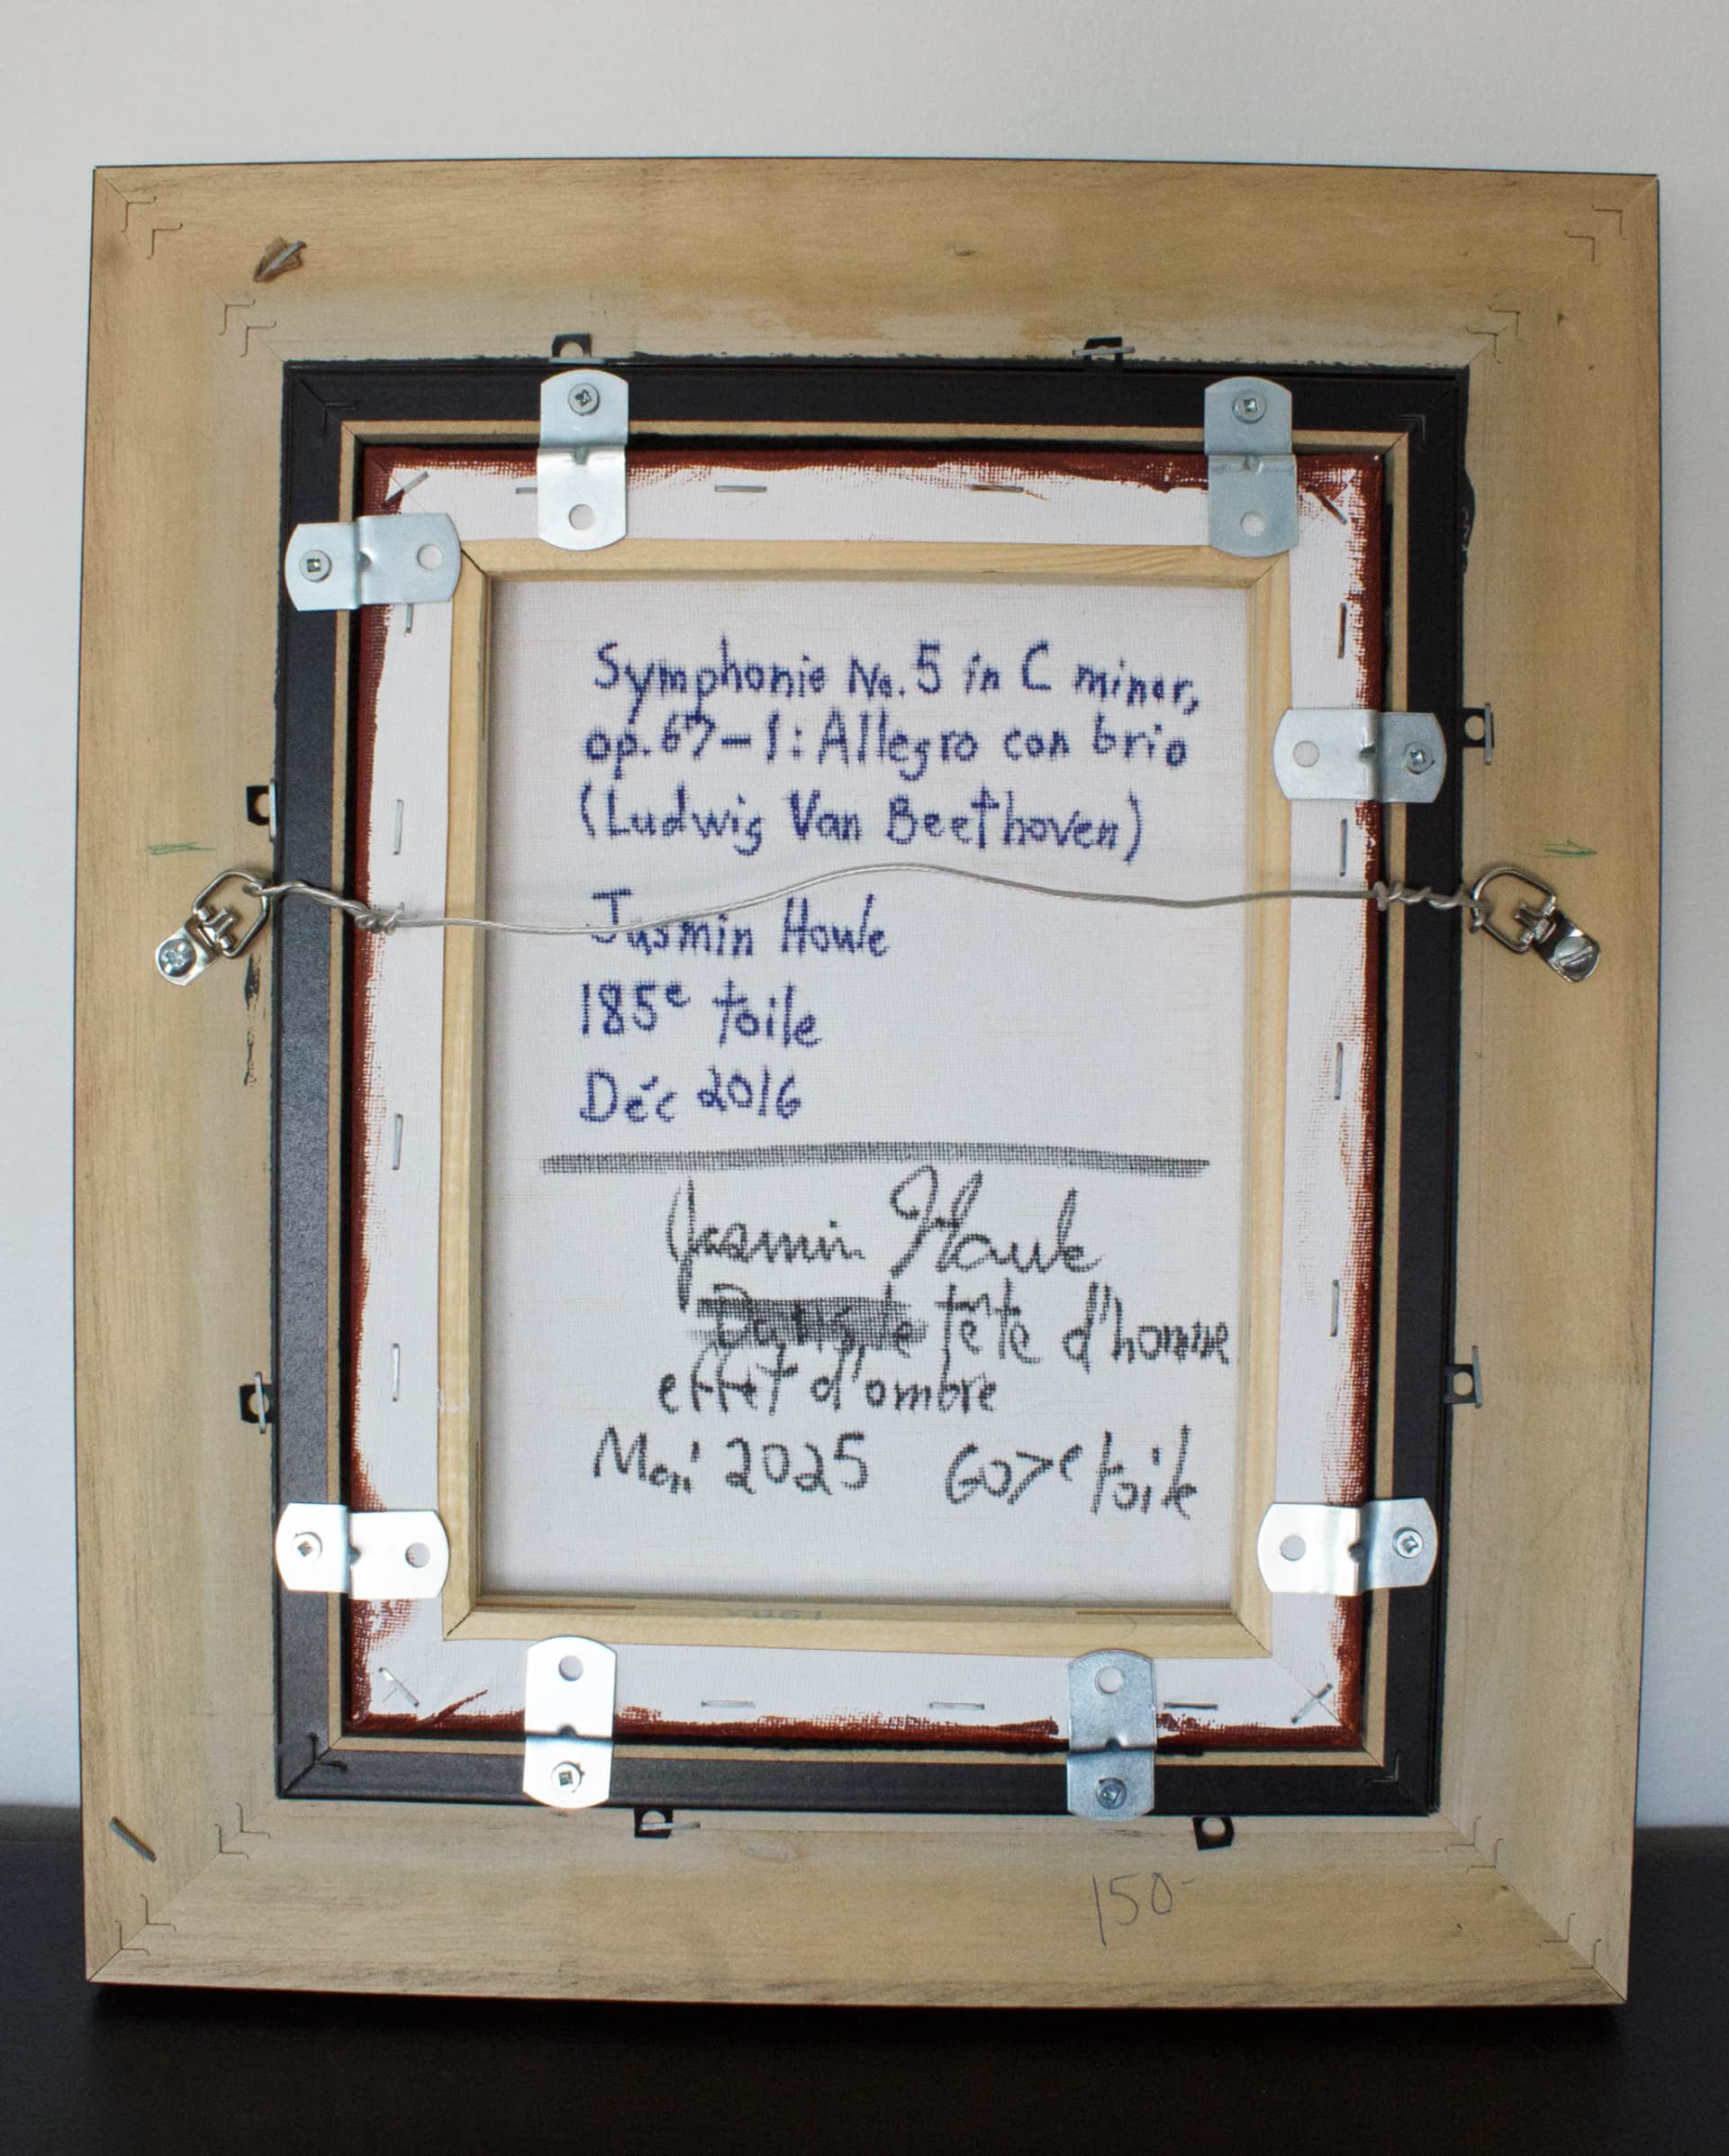 Symphonie No. 5 in C minor,
op. 67-1: Allegro con brio
(Ludwig Van Beethoven)
Jasmin Houle
185e toile
Déc 2016
Jasmin Houle
tête d'homme
effet d'ombre
Mai 2025 607e toile
150-